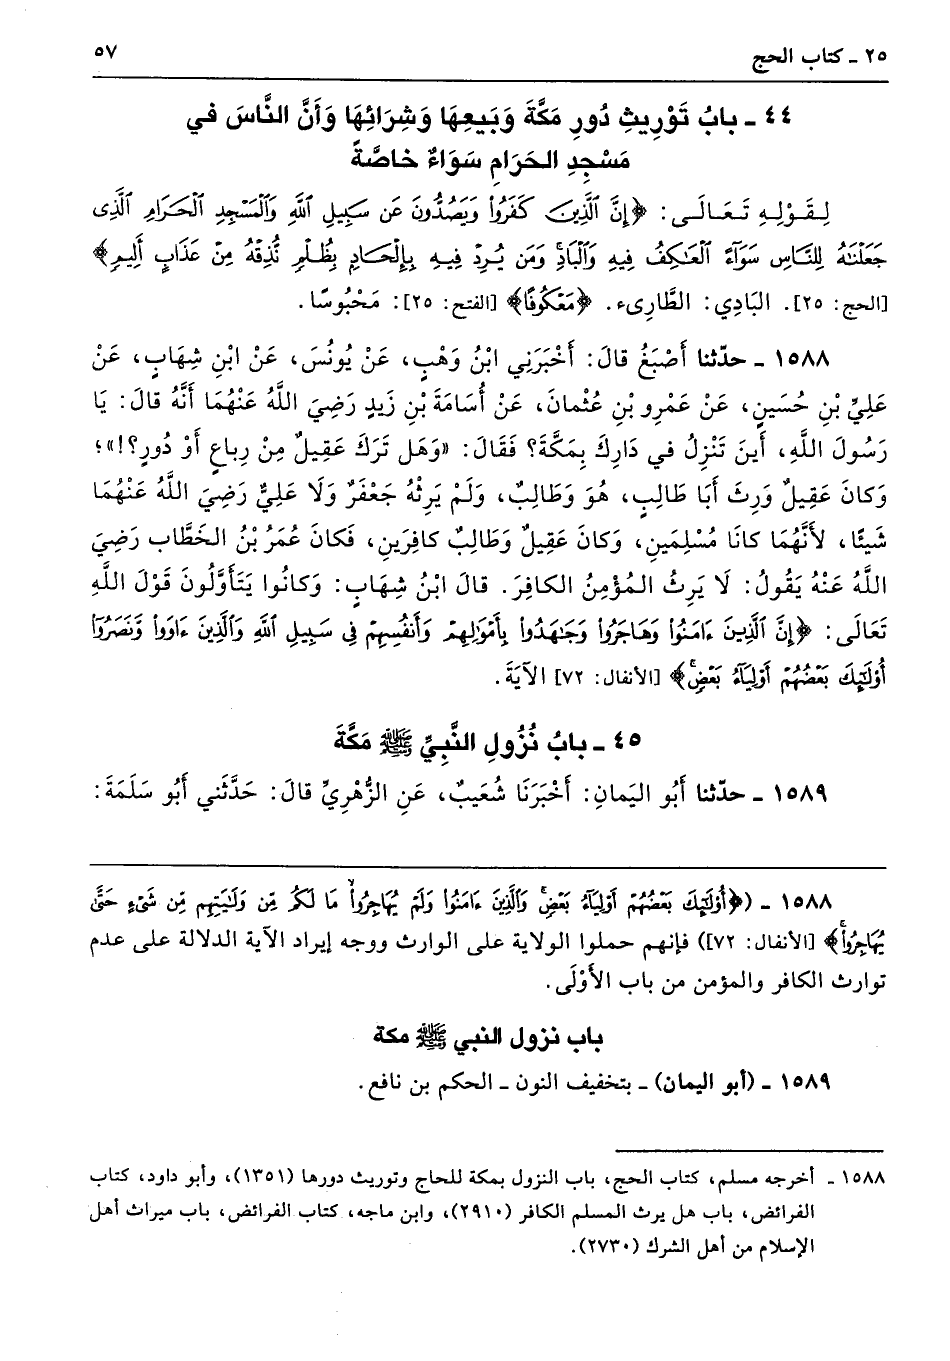 ٢٥ ـ كتاب الحج ٥٧
٤٤ ـ بابُ تَوْرِيثِ دُورِ مَكَّةَ وَبَيعِهَا وَشِرَائِهَا وَأَنَّ النَّاسَ في
مَسْجِدِ الحَرَامِ سَوَاءٌ خاصَّةً
لِـقَـوْلِـهِ تَـعَـالَـى: ﴿إِنَّ ٱلَّذِينَ كَفَرُوا۟ وَيَصُدُّونَ عَن سَبِيلِ ٱللَّهِ وَٱلْمَسْجِدِ ٱلْحَرَامِ ٱلَّذِى
جَعَلْنَٰهُ لِلنَّاسِ سَوَآءً ٱلْعَٰكِفُ فِيهِ وَٱلْبَادِ وَمَن يُرِدْ فِيهِ بِإِلْحَادٍ بِظُلْمٍ نُّذِقْهُ مِنْ عَذَابٍ أَلِيمٍ﴾
[الحج: ٢٥]. البَادِي: الطَّارِىء. ﴿مَعْكُوفًا﴾ [الفتح: ٢٥]: مَحْبُوسًا.
١٥٨٨ ـ حدّثنا أَصْبَغُ قالَ: أَخْبَرَنِي ابْنُ وَهْبٍ، عَنْ يُونُسَ، عَنْ ابْنِ شِهَابٍ، عَنْ
عَلِيِّ بْنِ حُسَينٍ، عَنْ عَمْرِو بْنِ عُثْمانَ، عَنْ أُسَامَةَ بْنِ زَيدٍ رَضِيَ اللَّهُ عَنْهُمَا أَنَّهُ قالَ: يَا
رَسُولَ اللَّهِ، أَينَ تَنْزِلُ في دَارِكَ بِمَكَّةَ؟ فَقَالَ: «وَهَل تَرَكَ عَقِيلٌ مِنْ رِباعٍ أَوْ دُورٍ؟!»؛
وَكانَ عَقِيلٌ وَرِثَ أَبَا طَالِبٍ، هُوَ وَطَالِبٌ، وَلَمْ يَرِثْهُ جَعْفَرٌ وَلَا عَلِيٌّ رَضِيَ اللَّهُ عَنْهُمَا
شَيئًا، لأَنَّهُمَا كانَا مُسْلِمَينِ، وَكانَ عَقِيلٌ وَطَالِبٌ كافِرَينِ، فَكانَ عُمَرُ بْنُ الخَطَّاب رَضِيَ
اللَّهُ عَنْهُ يَقُولُ: لَا يَرِثُ المُؤْمِنُ الكافِرَ. قالَ ابْنُ شِهَابٍ: وَكانُوا يَتَأَوَّلُونَ قَوْلَ اللَّهِ
تَعَالَى: ﴿إِنَّ ٱلَّذِينَ ءَامَنُوا۟ وَهَاجَرُوا۟ وَجَٰهَدُوا۟ بِأَمْوَٰلِهِمْ وَأَنفُسِهِمْ فِى سَبِيلِ ٱللَّهِ وَٱلَّذِينَ ءَاوَوا۟ وَّنَصَرُوٓا۟
أُو۟لَٰٓئِكَ بَعْضُهُمْ أَوْلِيَآءُ بَعْضٍ﴾ [الأنفال: ٧٢] الآيَةَ.
٤٥ ـ بابُ نُزُولِ النَّبِيِّ ﷺ مَكَّةَ
١٥٨٩ ـ حدّثنا أَبُو اليَمانِ: أَخْبَرَنَا شُعَيبٌ، عَنِ الزُّهْرِيِّ قالَ: حَدَّثَني أَبُو سَلَمَةَ:
١٥٨٨ ـ (﴿أُو۟لَٰٓئِكَ بَعْضُهُمْ أَوْلِيَآءُ بَعْضٍ وَٱلَّذِينَ ءَامَنُوا۟ وَلَمْ يُهَاجِرُوا۟ مَا لَكُم مِّن وَلَٰيَتِهِم مِّن شَىْءٍ حَتَّىٰ
يُهَاجِرُوا۟﴾ [الأنفال: ٧٢]) فإنهم حملوا الولاية على الوارث ووجه إيراد الآية الدلالة على عدم
توارث الكافر والمؤمن من باب الأَوْلَى.
باب نزول النبي ﷺ مكة
١٥٨٩ ـ (أبو اليمان) ـ بتخفيف النون ـ الحكم بن نافع.
١٥٨٨ ـ أخرجه مسلم، كتاب الحج، باب النزول بمكة للحاج وتوريث دورها (١٣٥١)، وأبو داود، كتاب
الفرائض، باب هل يرث المسلم الكافر (٢٩١٠)، وابن ماجه، كتاب الفرائض، باب ميراث أهل
الإسلام من أهل الشرك (٢٧٣٠).